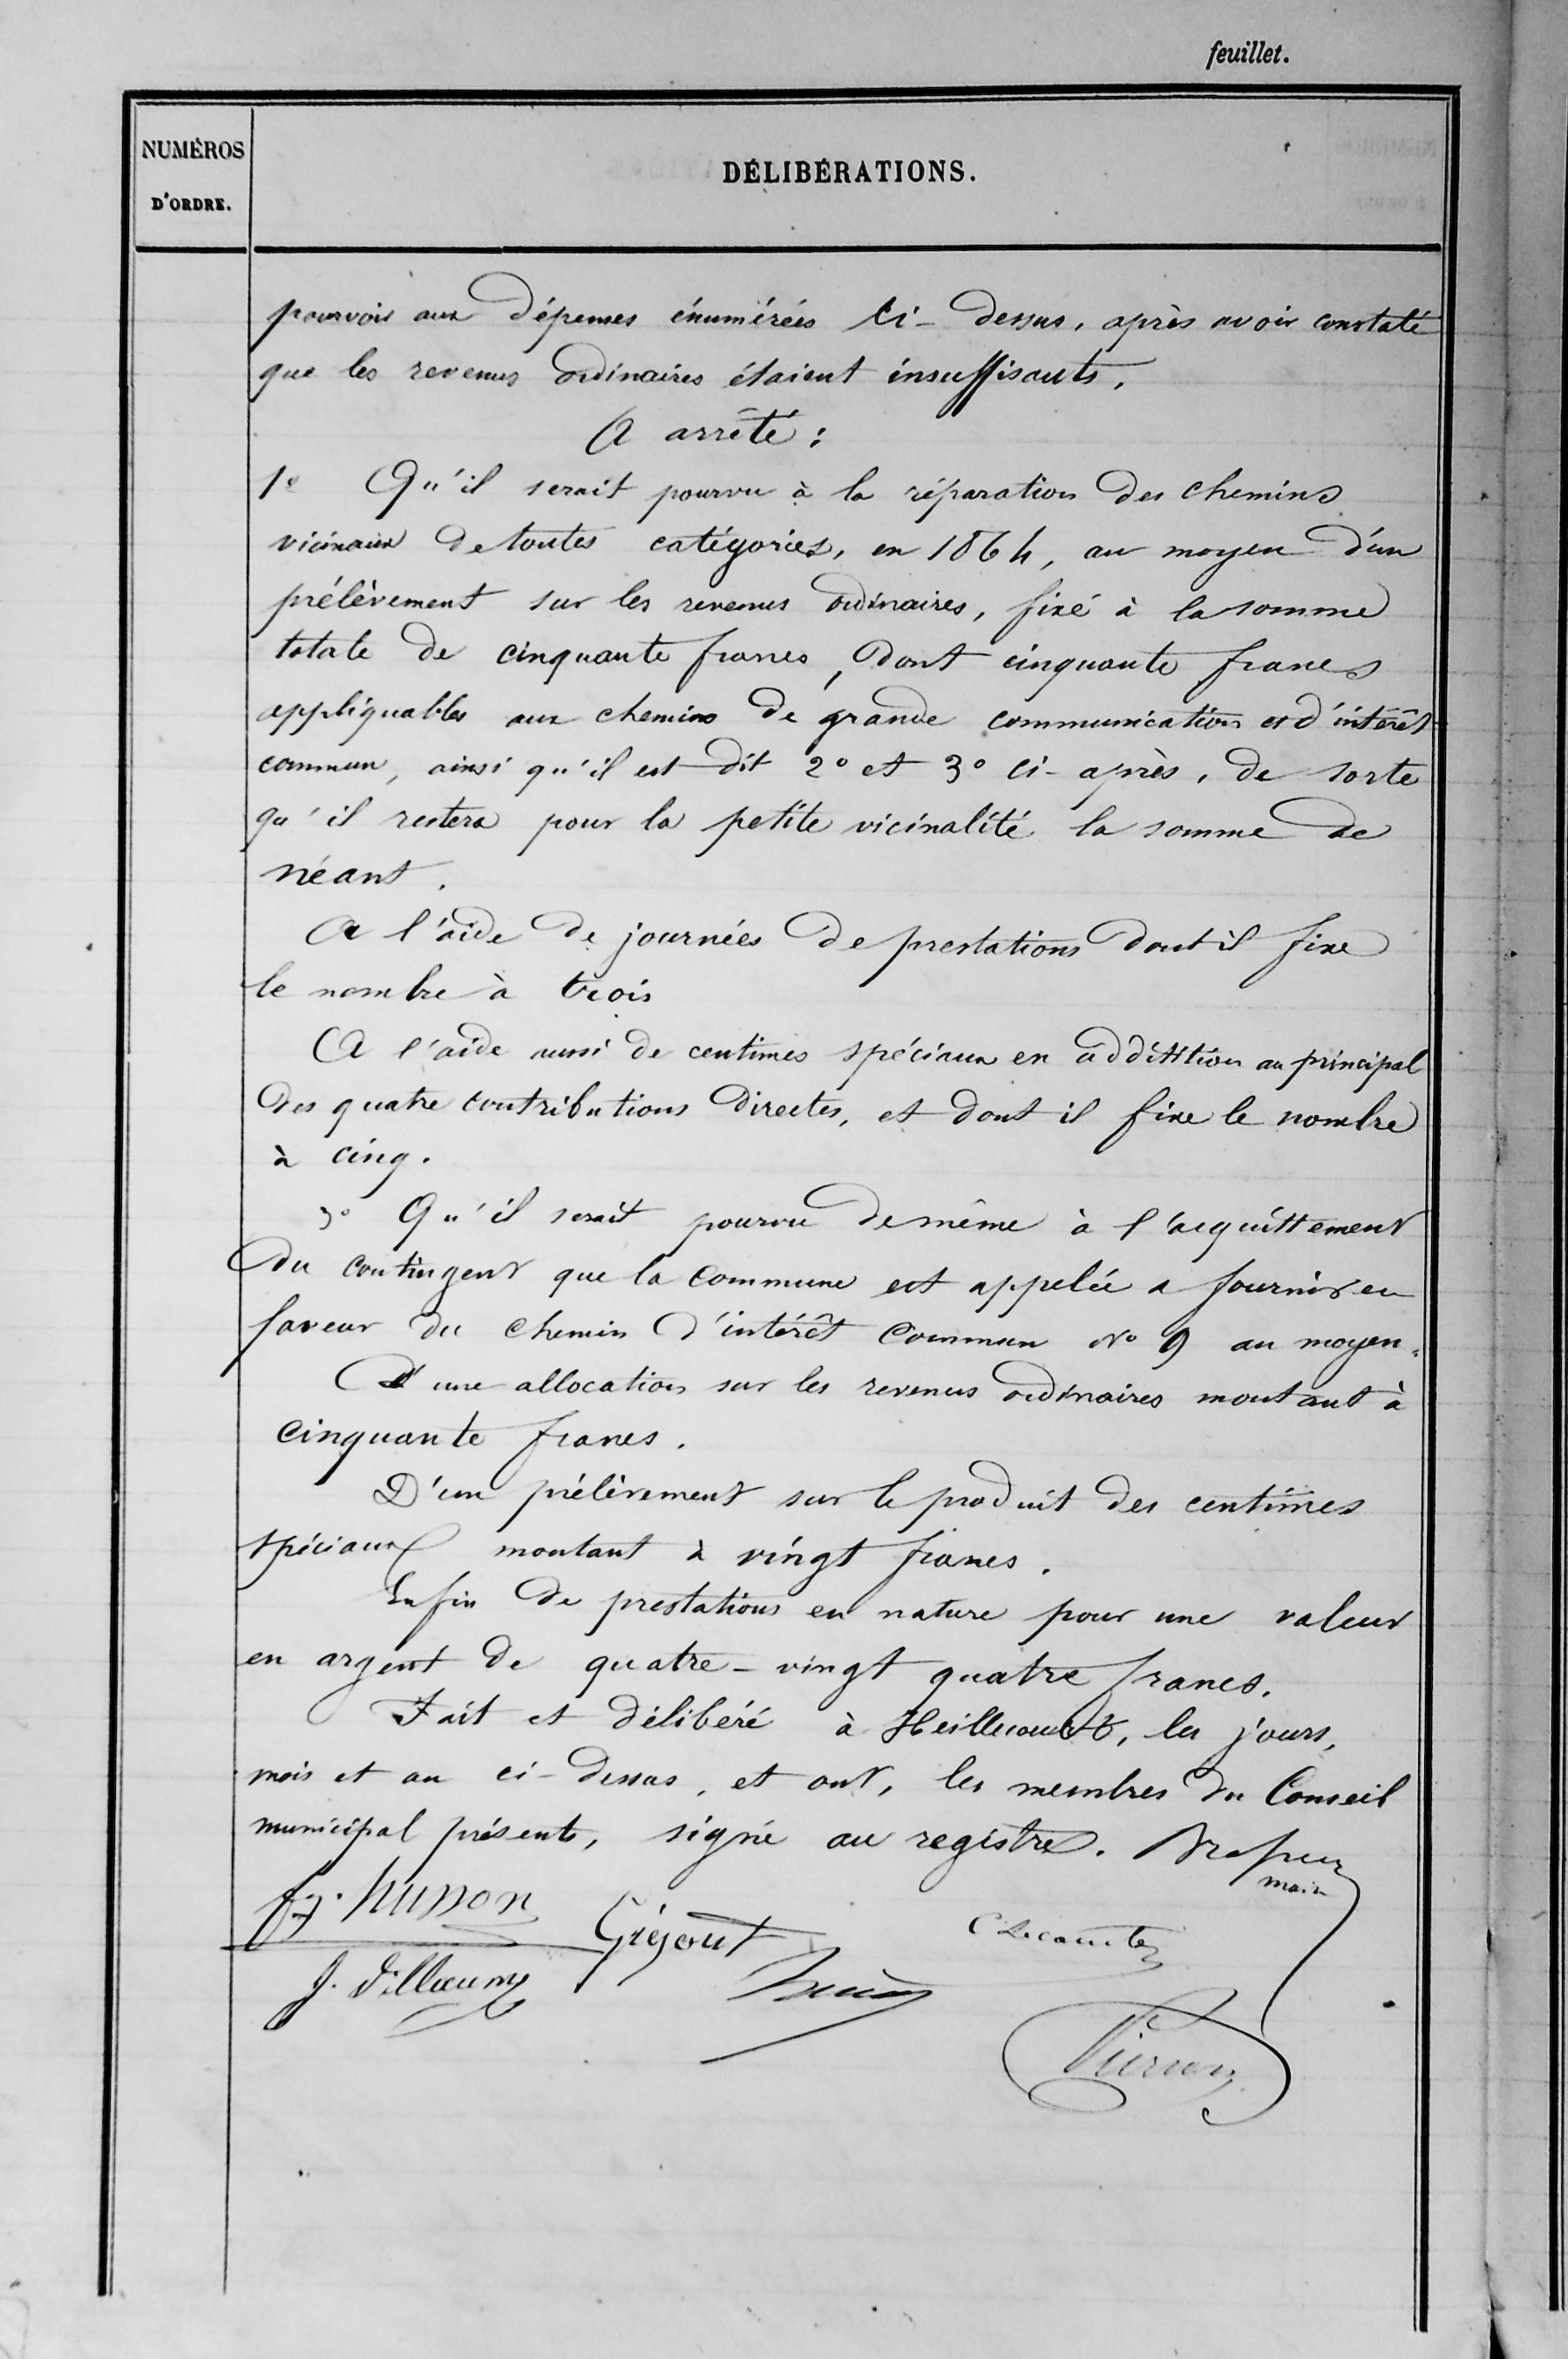 feuillet.
NUMÉROS
D'ORDRE.
DÉLIBÉRATIONS.
pourvoir aux dépenses énumérées ci-dessus, après avoir constaté
que les revenus ordinaires étaient insuffisants,
A arrêté :
1º Qu'il serait pourvu à la réparation des chemins
vicinaux de toutes catégories, en 1864, au moyen d'un
prélèvement sur les revenus ordinaires, fixé à la somme
totale de cinquante francs, dont cinquante francs
appliquables aux chemins de grande communication et d'intérêt
commun, ainsi qu'il est dit 2º et 3º ci-après, de sorte
qu'il restera pour la petite vicinalité la somme de
néant.
A l'aide de journées de prestations dont il fixe
le nombre à trois
A l'aide aussi de centimes spéciaux en addition au principal
des quatre contributions directes, et dont il fixe le nombre
à cinq.
3º Qu'il serait pourvu de même à l'acquittement
du contingent que la commune est appelée a fournir en
faveur du chemin d'intérêt commun Nº 9 au moyen :
D'une allocation sur les revenus ordinaires montant à
cinquante francs.
D'un prélèvement sur le produit des centimes
spéciaux montant à vingt francs.
Enfin de prestations en nature pour une valeur
en argent de quatre-vingt quatre francs.
Fait et délibéré à Heillecourt, les jours,
mois et an ci-dessus, et ont, les membres du Conseil
municipal présents, signé au registre.
maire
Husson
Gégout
C Lecomte
J. Villaume
Pierson